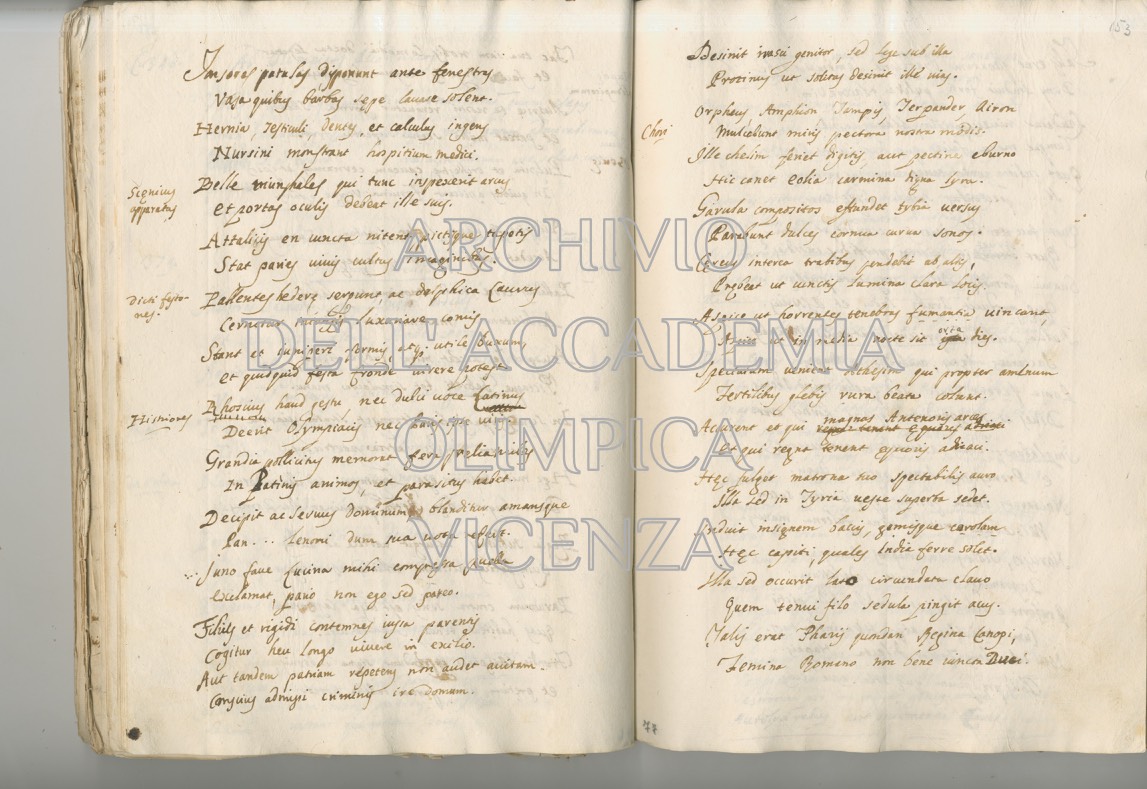 Tonsores patulas disponunt ante fenestras
Vasa quibus barbas sepe lavare solent.
Hernia, Testiculi, dentes, et calculus ingens
Nursini monstrant hospitium medici.
Scenicus apparatus
Delle qui tunc inspexerit arcus
et portas oculis debeat ille suis.
Attalicis en cuncta nitent, pictisque tapetis
Stat paries vivis cultus imaginibus.
Dicti fysto-
nes.
Pallentes hederę serpunt, ac delphica Laurus
Cernitur luxuriare comis
Stant et iuniperi formis, atque utile Buxum,
et quidquid festa fronde virere potest.
Histriones
Rhoscius haud gestu, nec dulci voce Latinus
Deerit Olympiacis nec
Grandia pollicitus memorat fera prelia miles
In Patinis animos, et parasitus habet.
Decipit ac servus dominum blanditur amansque
Lan... Lenoni dum sua vota
Juno fave Lucina mihi compressa puella
exclamat, pario non ego sed pareo.
Filius et rigidi contemnens iussa parentis
Cogitur heu longo vivere in exilio.
Aut tandem patriam repetens non audet avitam
Conscius admissi criminis ire domum.
153
Desinit irasci genitor, sed lege sub illa
Protinus ut solitas desinit ille vias.
Chori
Orpheus, Amphion Tampis, Terpander, Airon
Mulcebunt miris pectora nostra modis.
Ille chelim feriet digitis, aut pectine eburno
Hic canet eolia carmina digna lyra.
Garula compositos effundet tybia versus
Parabunt dulces cornua curva sonos.
Cereus interea trabibus pendebit ab altis,
Prębeat ut cunctis lumina clara locis.
Aspice ut horrentes tenebras fumantia vincant,
ut in media nocte sit orta dies.
Spectatum venient Athesim qui propter amęnum
Fertilibus glebis rura beata colunt.
magnas Antenoris arces
Accurent et qui regna tenent ęquoris adriaci
et qui regna tenent ęquoris adriaci.
Hęc fulget matrona suo spectabilis auro
Illa sed in Tyria veste superba sedet.
Induit insignem baccis, gemisque corolam
Hęc capiti, quales India ferre solet.
Illa sed occurit lato circundata clavo
Quem tenui filo sedula pingit acus.
Talis erat Pharij quondam Regina Canopi,
Femina Romano non bene iuncta Duci.
77
ARCHIVIO
DELL'ACCADEMIA
OLIMPICA
VICENZA